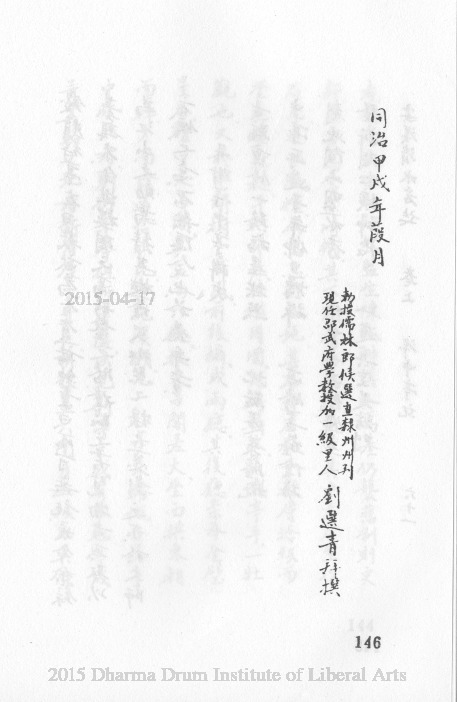 同治甲戌年葭月
勅授儒林郎候選直隸州州判
現任邵武府學教授加一級里人
劉選青拜撰
146
2015-04-17
2015 Dharma Drum Institute of Liberal Arts